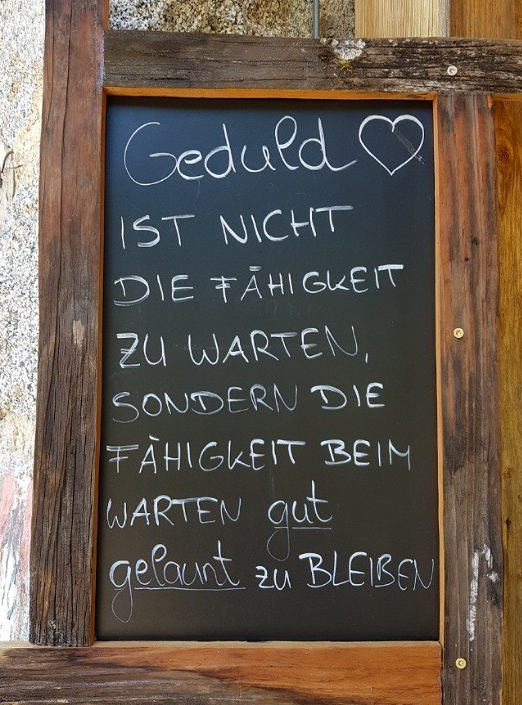 Geduld ♡
IST NICHT
DIE FÄHIGKEIT
ZU WARTEN,
SONDERN DIE
FÄHIGKEIT BEIM
WARTEN gut
gelaunt zu BLEIBEN